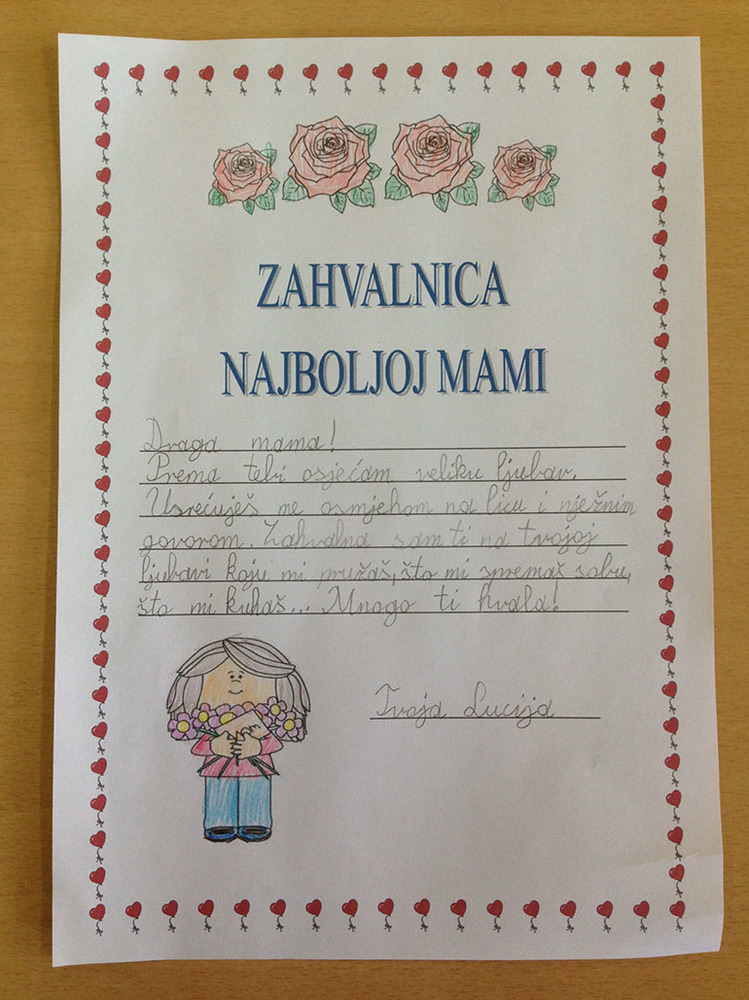 ZAHVALNICA
NAJBOLJOJ MAMI
Draga mama!
Prema tebi osjećam veliku ljubav.
Usrećuješ me osmjehom na licu i nježnim
govorom. Zahvalna sam ti na tvojoj
ljubavi koju mi pružaš, što mi spremaš sobu,
što mi kuhaš... Mnogo ti hvala!
Tvoja Lucija